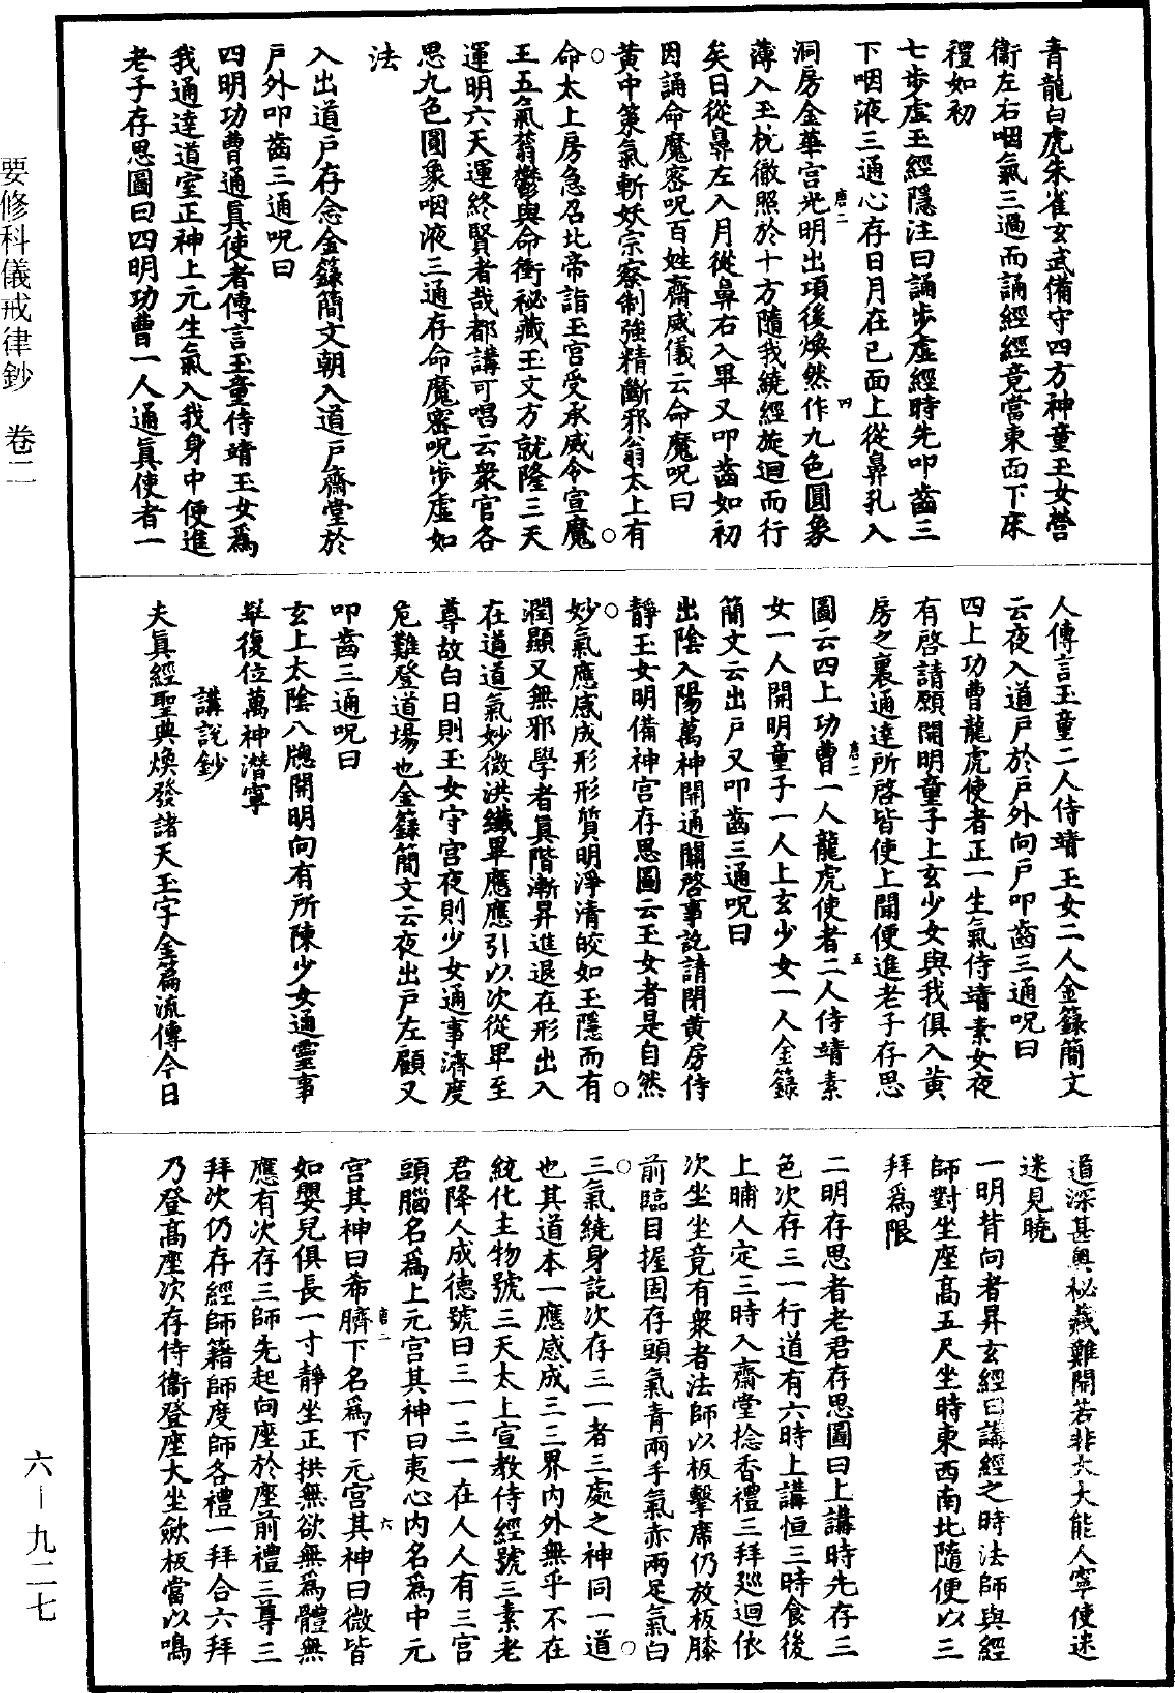 青龍白虎朱雀玄武備守四方神童玉女營
衞左右咽氣三過而誦經經竟當東面下床
禮如初
七步虛玉經隱注曰誦步虛經時先叩齒三
下咽液三通心存日月在己面上從鼻孔入
洞房金華宮光明出項後煥然作九色圓象
薄入玉枕徹照於十方隨我繞經旋迴而行
矣日從鼻左入月從鼻右入畢又叩齒如初
因誦命魔密呪百姓齋威儀云命魔呪曰
黃中策氣斬妖宗察制強精斷邪翁太上有
命太上房急召北帝詣玉宮受承威令宣魔
王五氣蓊鬱與命衝祕藏玉文方就隆三天
運明六天運終賢者哉都講可唱云衆官各
思九色圓象咽液三通存命魔密呪步虛如
法
入出道戶存念金籙簡文朝入道戶齋堂於
戶外叩齒三通呪曰
四明功曹通眞使者傳言玉童侍靖玉女爲
我通達道室正神上元生氣入我身中便進
老子存思圖曰四明功曹一人通眞使者一
唐二
四
人傳言玉童二人侍靖玉女二人金籙簡文
云夜入道戶於戶外向戶叩齒三通呪曰
四上功曹龍虎使者正一生氣侍靖素女夜
有啓請願開明童子上玄少女與我俱入黃
房之裏通達所啓皆使上聞便進老子存思
圖云四上功曹一人龍虎使者二人侍靖素
女一人開明童子一人上玄少女一人金籙
簡文云出戶又叩齒三通呪曰
出陰入陽萬神開通關啓事訖請閉黃房侍
靜玉女明備神宮存思圖云玉女者是自然
妙氣應感成形形質明淨清皎如玉隱而有
潤顯又無邪學者眞階漸昇進退在形出入
在道道氣妙微洪纖畢應應引以次從卑至
尊故白日則玉女守宮夜則少女通事濟度
危難登道場也金籙簡文云夜出戶左顧又
叩齒三通呪曰
玄上太陰八牕開明向有所陳少女通靈事
畢復位萬神潛寧
講說鈔
夫眞經聖典煥發諸天玉字金篇流傳今日
唐二
五
道深甚奧秘義難開若非大大能人寧使迷
迷見曉
一明背向者昇玄經曰講經之時法師與經
師對坐座高五尺坐時東西南北隨便以三
拜爲限
二明存思者老君存思圖曰上講時先存三
色次存三一行道有六時上講恒三時食後
上晡人定三時入齋堂捻香禮三拜巡迴依
次坐坐竟有衆者法師以板擊席仍放板膝
前臨目握固存頭氣青兩手氣赤兩足氣白
三氣繞身訖次存三一者三處之神同一道
也其道本一應感成三三界內外無乎不在
統化主物號三天太上宣教侍經號三素老
君降人成德號曰三一三一在人人有三宮
頭腦名爲上元宮其神曰夷心內名爲中元
宮其神曰希臍下名爲下元宮其神曰微皆
如嬰兒俱長一寸靜坐正拱無欲無爲體無
應有次存三師先起向座於座前禮三尊三
拜次仍存經師籍師度師各禮一拜合六拜
乃登高座次存侍衞登座大坐斂板當以鳴
唐二
六
要修科儀戒律鈔　卷二
六—九二七